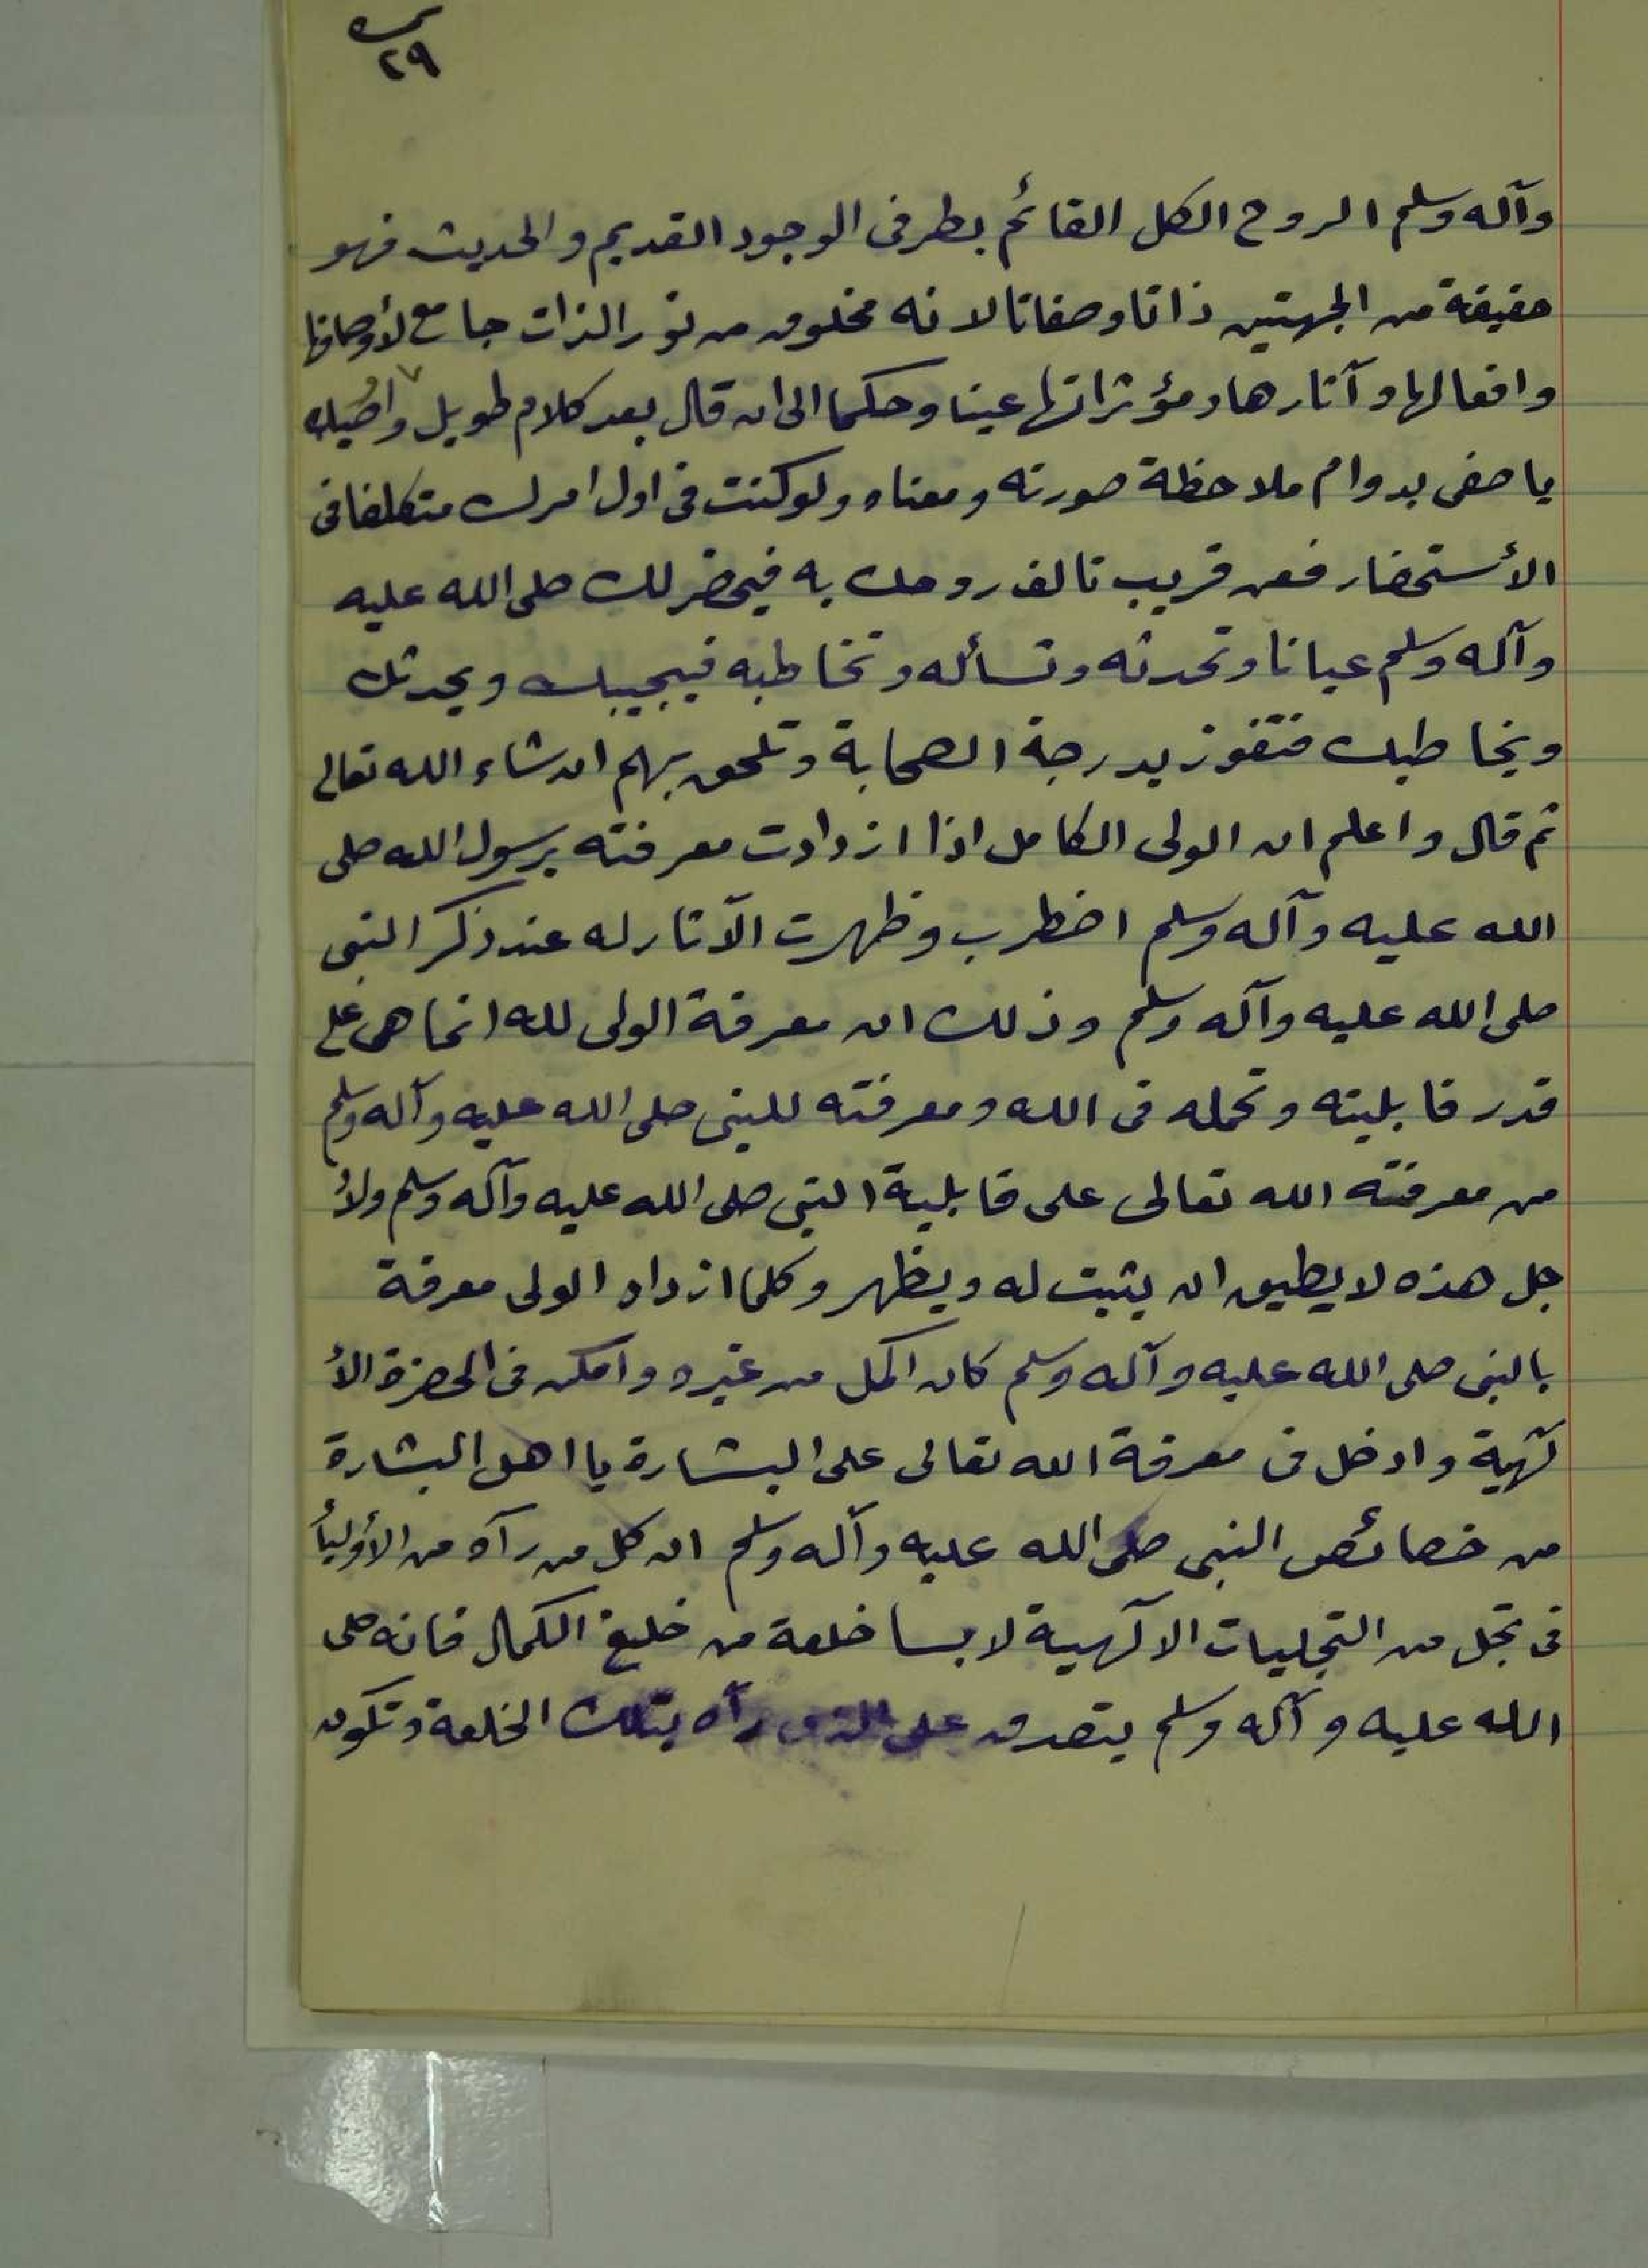 ٢٩
وآله وسلم الروح الكل القائم بطرفى الوجود القديم والحديث فهو
حقيقة من الجهتين ذاتا وصفاتا لانه مخلوق من نور الذات جامع لأوصافها
وافعالها وآثارها ومؤثراتها عينا وحكما الى ان قال بعد كلام طويل واصيك
ياصفى بدوام ملاحظة صورته ومعناه ولوكنت فى اول امرك متكلفا فى
الأستحضار فعن قريب تالف روحك به فيحضر لك صلى الله عليه
وآله وسلم عيانا وتحدثه وتسأله وتخاطبه فيجيبك ويحدثك
ويخاطبك فتفوز بدرجة الصحابة وتلحق بهم ان شاء الله تعالى
ثم قال واعلم ان الولى الكامل اذا ازدادت معرفته برسول الله صلى
الله عليه وآله وسلم اضطرب وظهرت الآثار له عند ذكر النبى
صلى الله عليه وآله وسلم وذلك ان معرفة الولى لله انما هى على
قدر قابليته وتحمله فى الله ومعرفته للنبى صلى الله عليه وآله وسلم
من معرفته الله تعالى على قابلية النبى صلى الله عليه وآله وسلم ولأ
جل هذه لايطيق ان يثبت له ويظهر وكلما ازداد الولى معرفة
بالنبى صلى الله عليه وآله وسلم كان اكمل من غيره وامكن فى الحضرة الأ
لٓهية وادخل فى معرفة الله تعالى على البشارة يا اهل البشارة
من خصائص النبى صلى الله عليه وآله وسلم ان كل من رآه من الأوليأ
فى تجل من التجليات الالٓهية لابسا خلعة من خلع الكمال فانه صلى
الله عليه وآله وسلم يتصدق على الذى رآه بتلك الخلعة وتكون